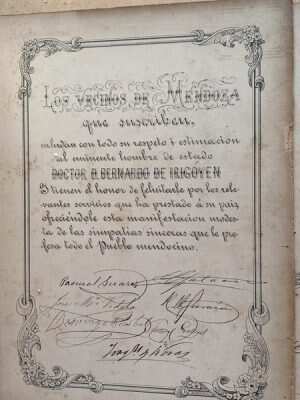 LOS VECINOS DE MENDOZA
que suscriben,
saludan con todo su respeto i estimacion
al eminente hombre de estado
DOCTOR D. BERNARDO DE IRIGOYEN
I tienen el honor de felicitarle por los rele-
vantes servicios que ha prestado á su pais
ofreciéndole esta manifestacion modes-
ta de las simpatias sinceras que le pro-
fesa todo el Pueblo mendocino.
Pascual Suarez
José Ma
Domingo